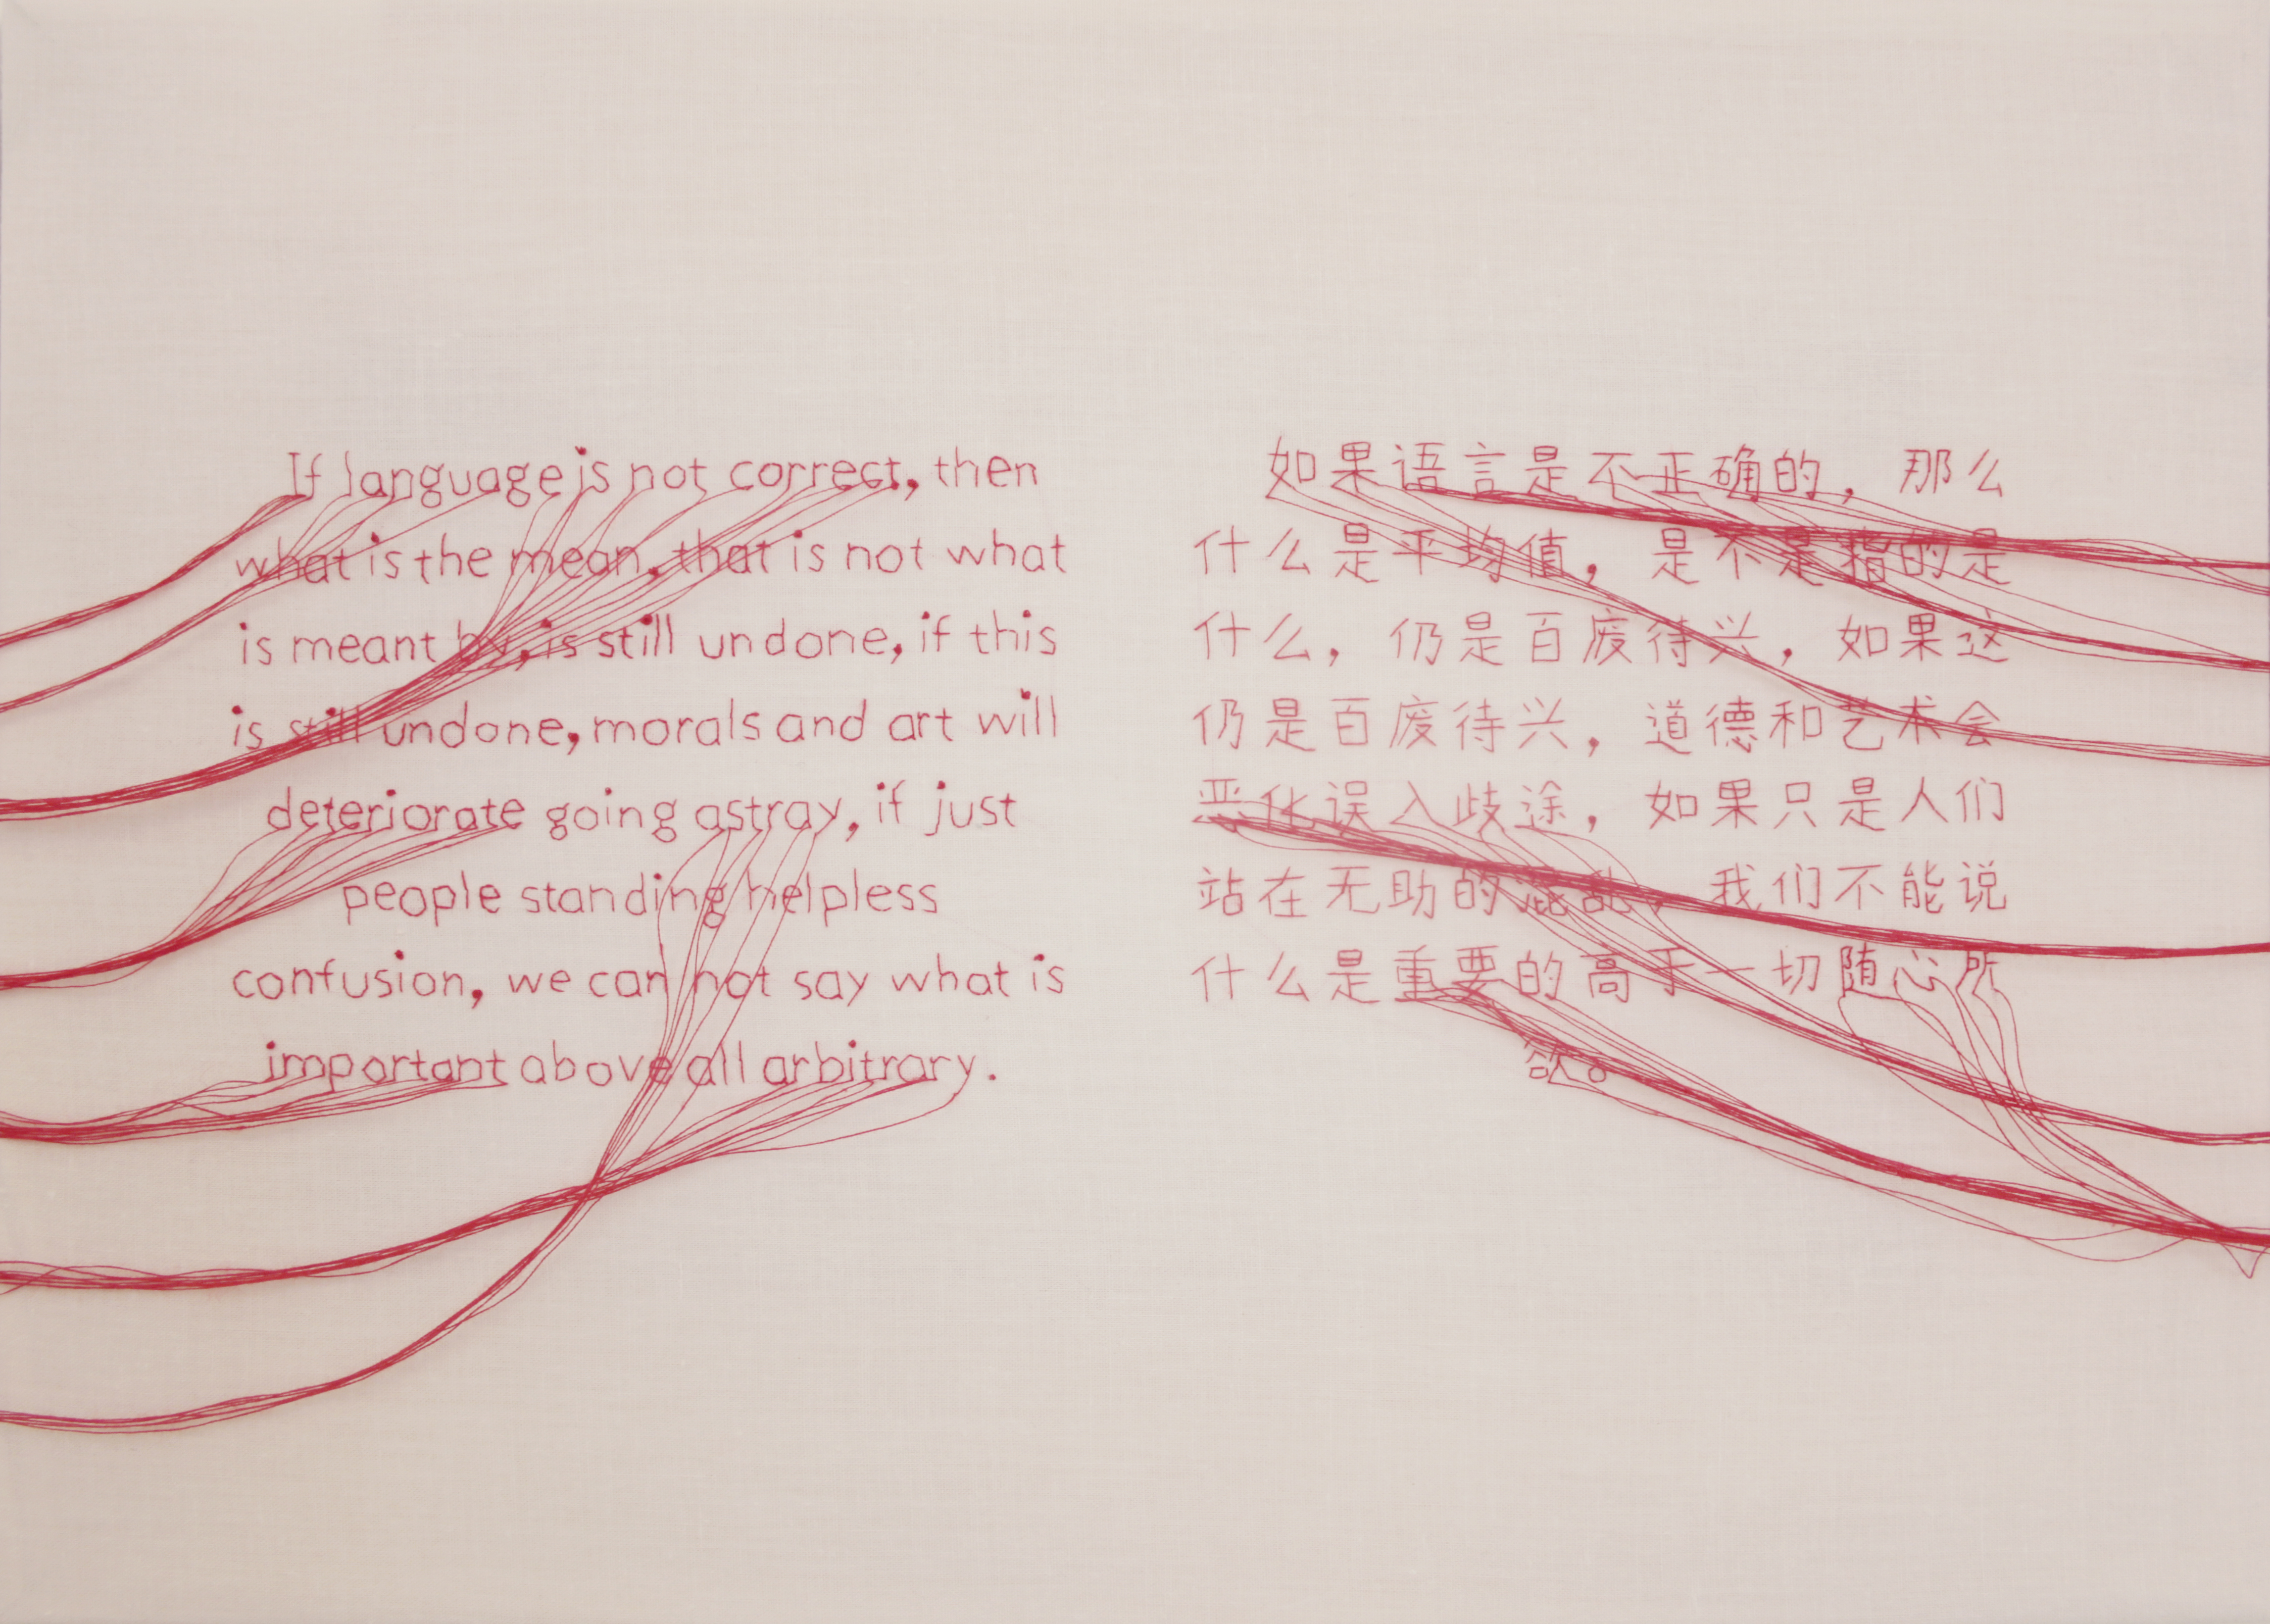 If language is not correct, then
what is the mean, that is not what
is meant by, is still undone, if this
is still undone, morals and art will
deteriorate going astray, if just
people standing helpless
confusion, we can not say what is
important above all arbitrary.
如果语言是不正确的，那么
什么是平均值，是不是指的是
什么，仍是百废待兴，如果这
仍是百废待兴，道德和艺术会
恶化误入歧途，如果只是人们
站在无助的混乱，我们不能说
什么是重要的高于一切随心所
欲。